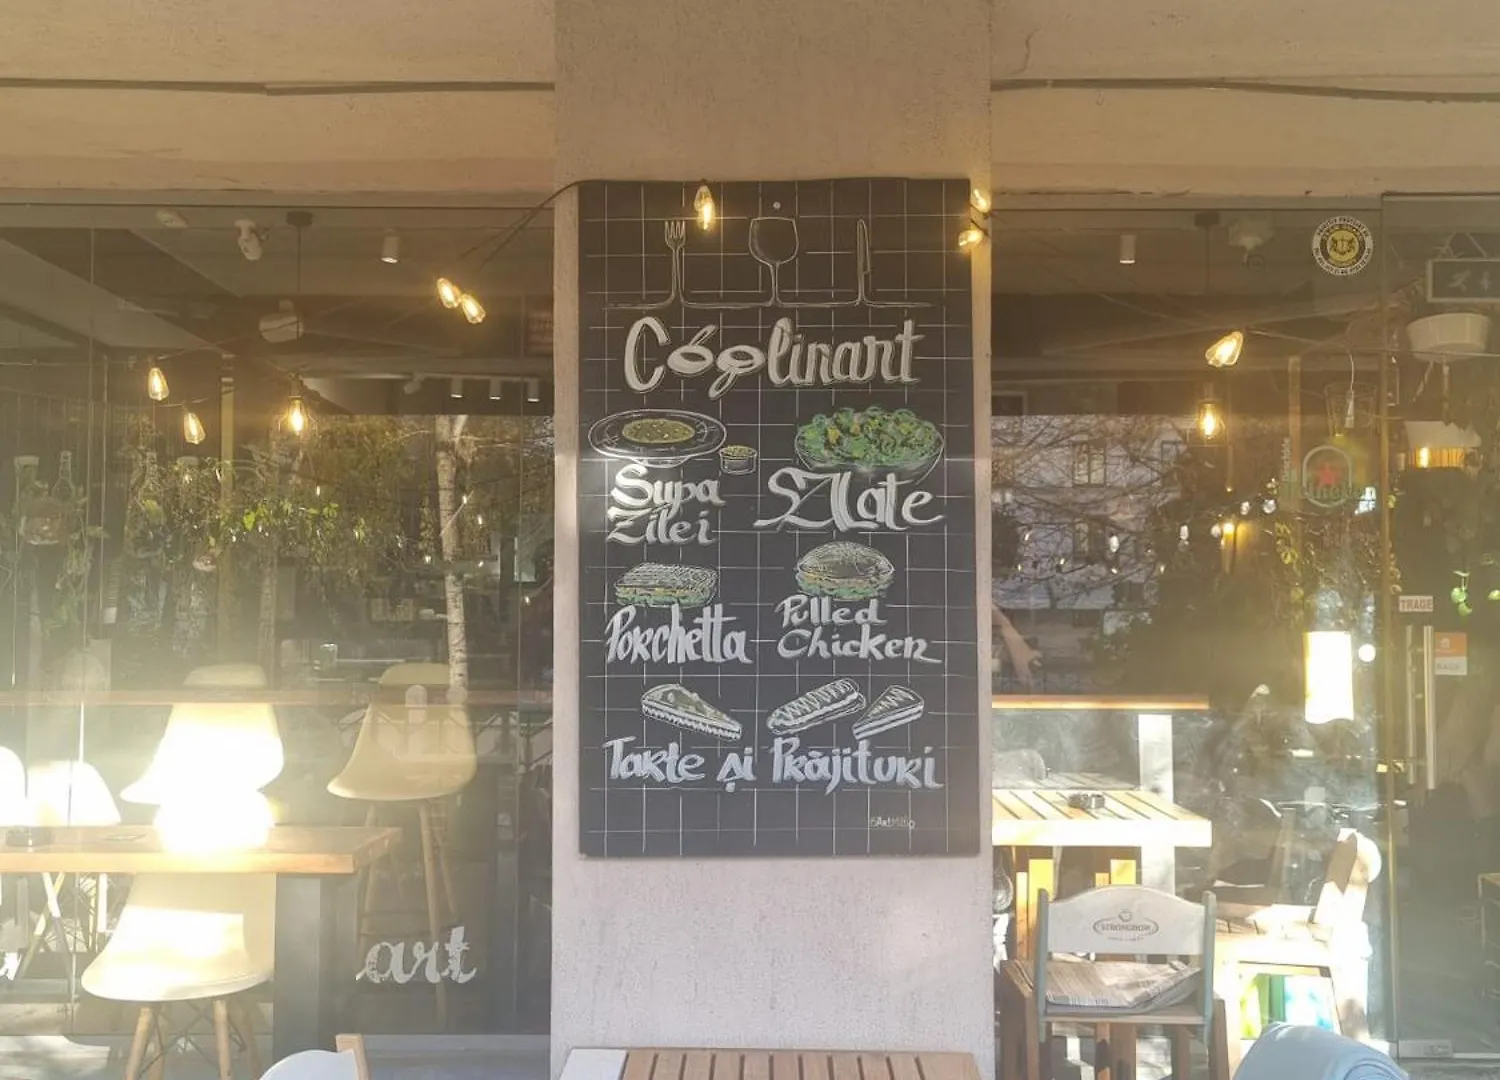 Coolinart
Supa
Zilei
SALate
Porchetta
Pulled
Chicken
Tarte și Prăjituri
art
Heineken
TRAGE
STRONGBOW